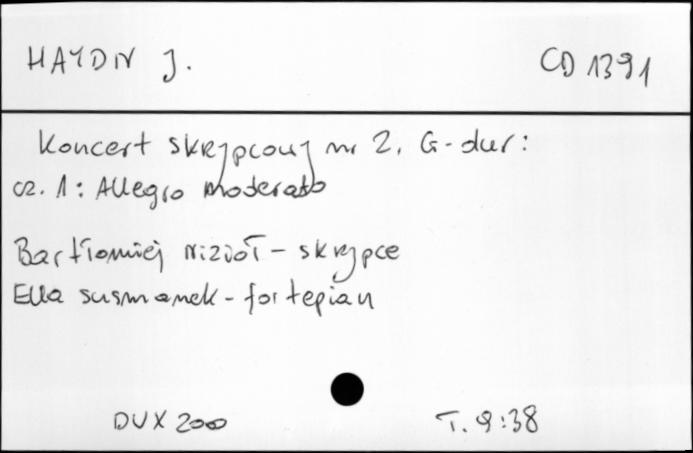 HAYDN J. CD 1391
Koncert skrzypcowy nr 2, G-dur:
cz. 1: Allegro moderato
Bartłomiej Nizioł - skrzypce
Ella Susmanek - fortepian
DUX 2000 T. 9:38